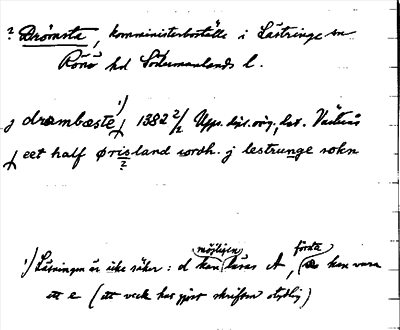 ? Drömsta, komministerboställe i Lästringe sn
Rönö hd Södermanlands l.
j drambæste 1) 1382 2/2 Upps. dat. Västerås
eet half ørisland jordh. j lestrunge sokn
?
1) Läsningen är icke säker: d kan möjligen läsas A, första kan vara
ett e (ett veck har gjort skriften otydlig)